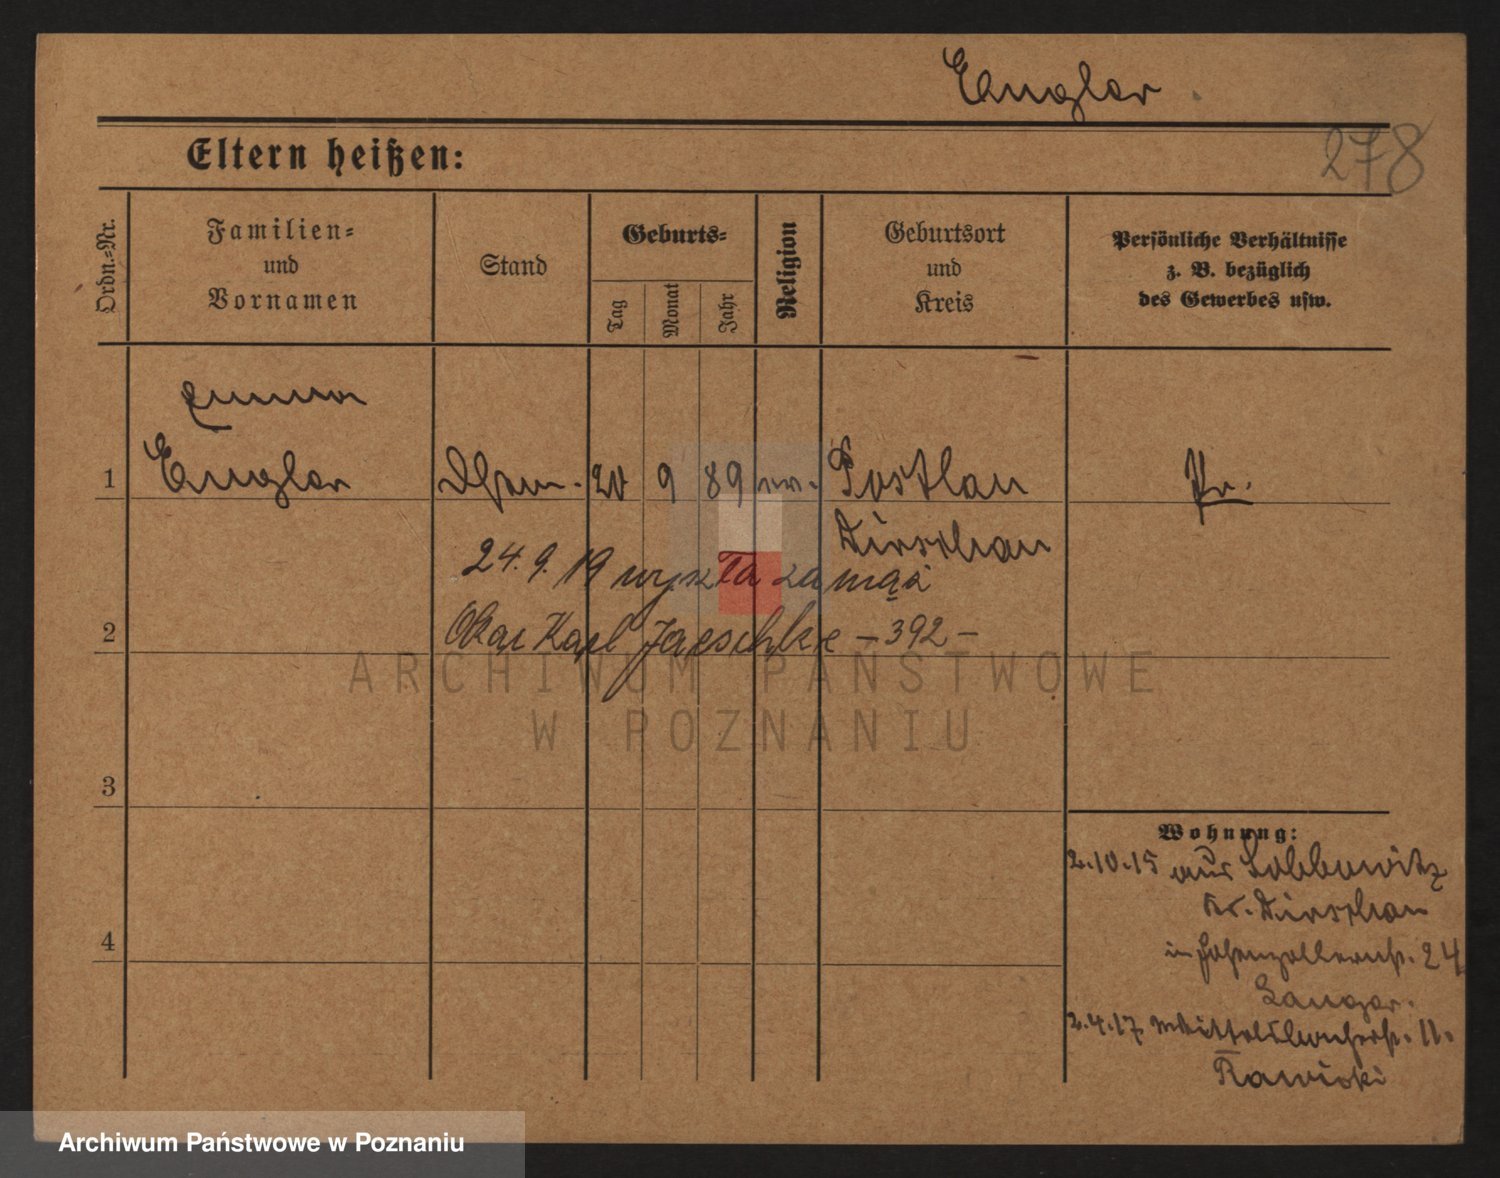 Engler
278
Eltern heißen:
Ordn.-Nr.
Familien-
und
Vornamen
Stand
Geburts-
Tag
Monat
Jahr
Religion
Geburtsort
und
Kreis
Persönliche Verhältnisse
z. B. bezüglich
des Gewerbes usw.
Emma
1 Engler 20 9 89 Postlau Pr.
Dirschau
24. 9. 19 wyszła zamąż
2 Oskar Karl Jaeschke – 392 –
3
4
Wohnung:
2.10.15 aus Sobbowitz
Kr. Dirschau
in Hohenzollernstr. 24
Langer.
2.4.17. 11.
Rawicki
ARCHIWUM PAŃSTWOWE
W POZNANIU
Archiwum Państwowe w Poznaniu